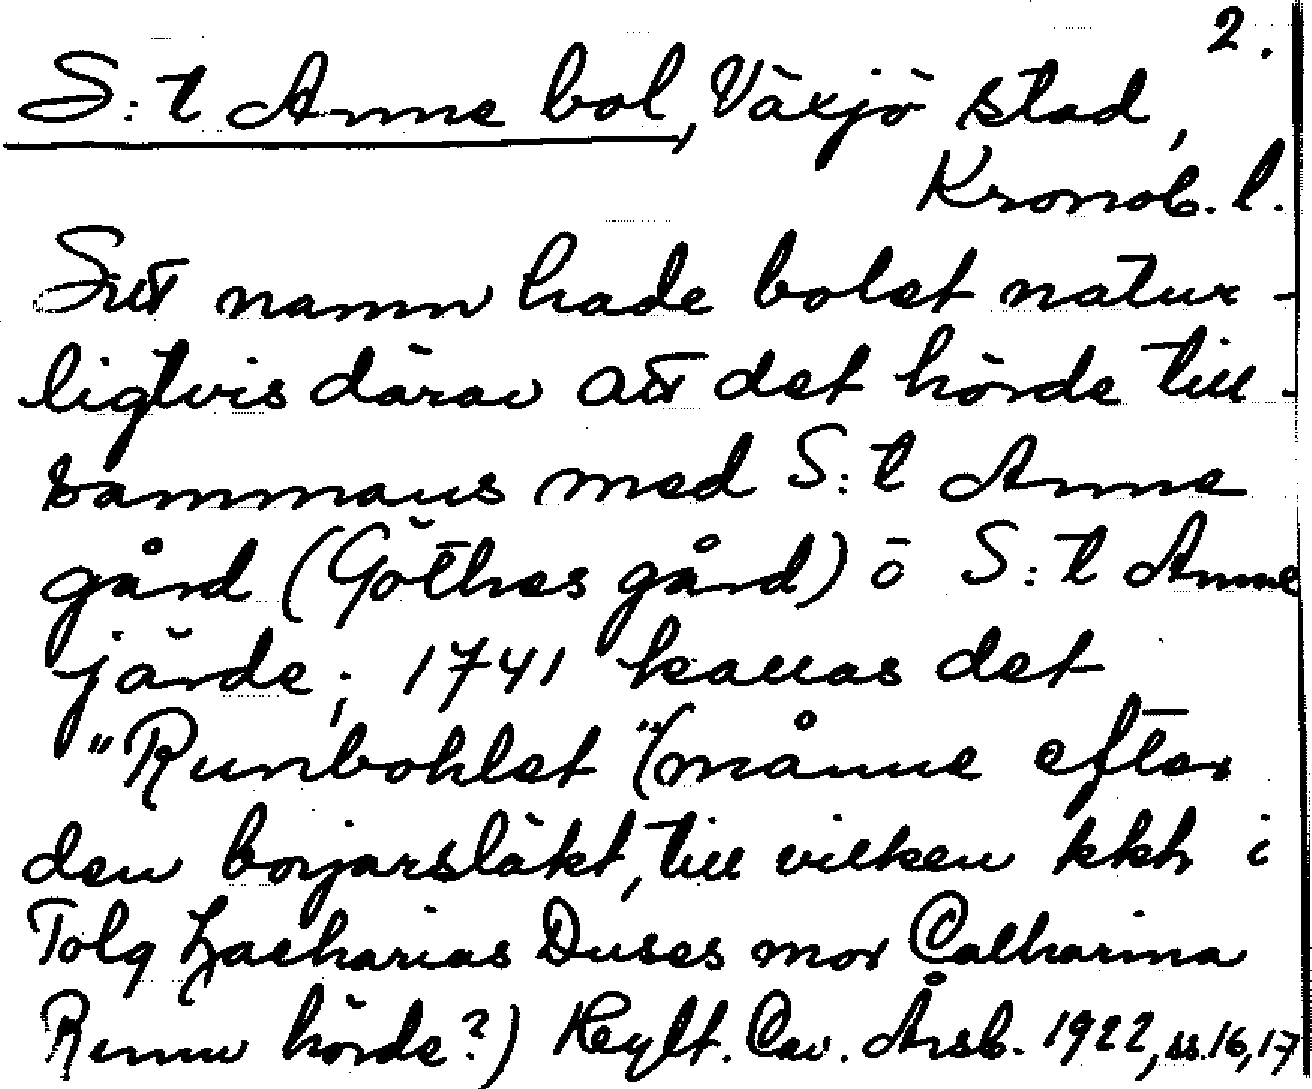 2.
S:t Anne bol, Växjö stad,
Kronob. l.
Sitt namn hade bolet natur-
ligtvis därav att det hörde till-
sammans med S:t Anne
gård (Göthes gård) o S:t Anne
järde; 1741 kallas det
"Runbohlet" (månne efter
den borjarsläkt, till vilken kkh i
Tolg Zacharias Duses mor Catharina
Runn hörde?) Heylt. Cav. Årsb. 1922, ss. 16, 17